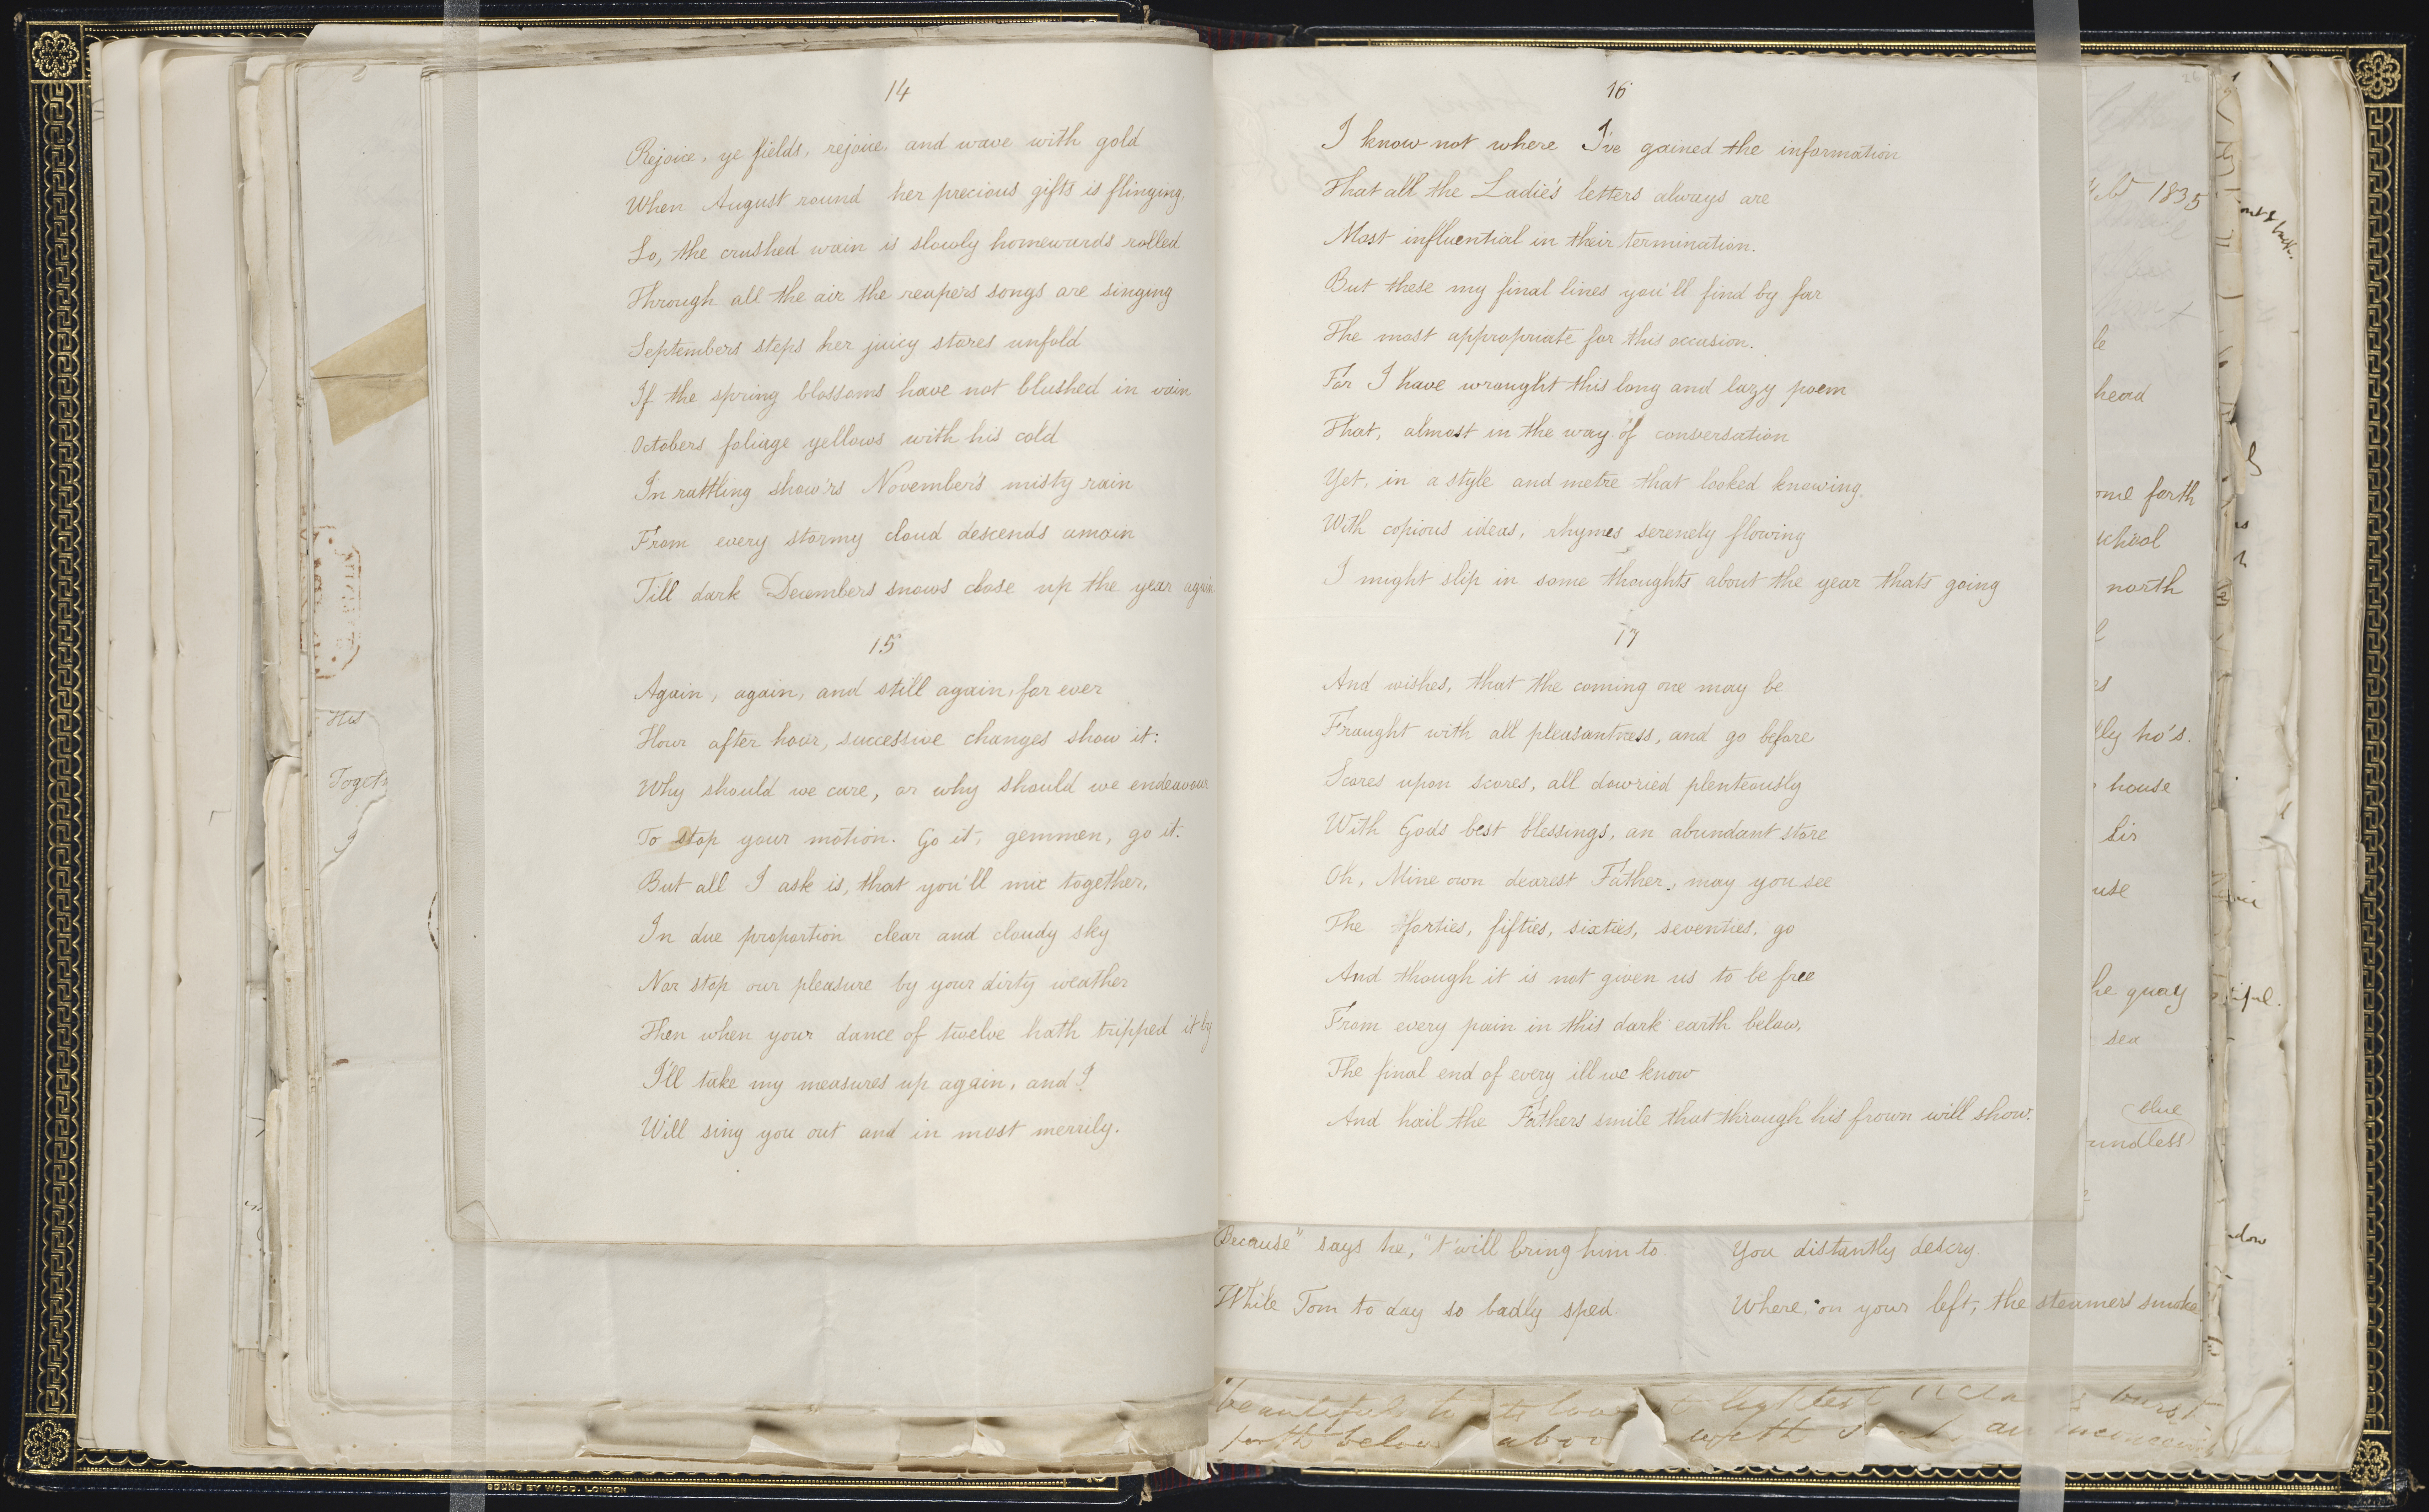 14
Rejoice, ye fields, rejoice and wave with gold
When August round her precious gifts is flinging,
Lo, the crushed wain is slowly homewards rolled
Through all the air the reapers songs are singing
Septembers steps her juicy stores unfold
If the spring blossoms have not blushed in vain
Octobers foliage yellows with his cold
In rattling show'rs November's misty rain
From every stormy cloud descends amain
Till dark Decembers snows close up the year again
15
Again, again, and still again, for ever
Hour after hour, successive changes show it:
Why should we care, or why should we endeavour
To stop your motion. Go it, gemmen, go it.
But all I ask is, that you'll mix together,
In due proportion clear and cloudy sky
Nor stop our pleasure by your dirty weather
Then when your dance of twelve hath tripped it by
I'll take my measures up again, and I
Will sing you out and in most merrily.
His
Togeth
16
I know not where I've gained the information
That all the Ladie's letters always are
Most influential in their termination.
But these my final lines you'll find by far
The most appropriate for this occasion.
For I have wrought this long and lazy poem
That, almost in the way of conversation
Yet, in a style and metre that looked knowing.
With copious ideas, rhymes serenely flowing
I might slip in some thoughts about the year thats going
17
And wishes, that the coming one may be
Fraught with all pleasantness, and go before
Scores upon scores, all dowried plenteously
With Gods best blessings, an abundant store
Oh, Mine own dearest Father, may you see
The forties, fifties, sixties, seventies, go
And though it is not given us to be free
From every pain in this dark earth below,
The final end of every ill we know
And hail the Fathers smile that through his frown will show.
Because" says he, "t'will bring him to.
While Tom to day so badly sped.
You distantly descry.
Where, on your left, the steamers smoke
26
1835
le
head
ome forth
school
north
es
lly ho's.
house
Sir
use
he quay
sea
blue
undless
tiful.
ndow
forth below
with
BOUND BY WOOD. LONDON